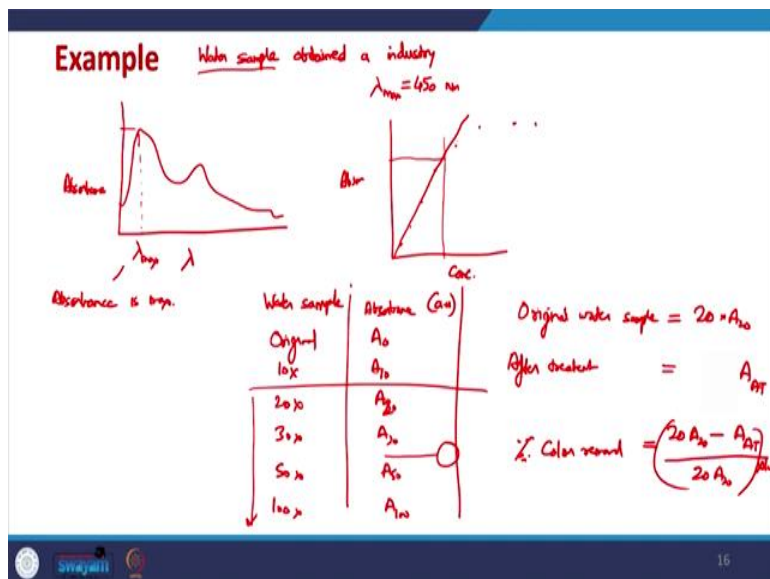 Example
Water sample obtained a industry
λmax = 450 nm
Absorbance
λmax λ
Absorbance is max.
Absor
Conc.
Water sample Absorbance (au)
Original A0
10x A10
20x A20
30x A30
50x A50
100x A100
Original water sample = 20 * A20
After treatent = AAT
% Color remood = (20 A20 - AAT / 20 A20)
swayam
16